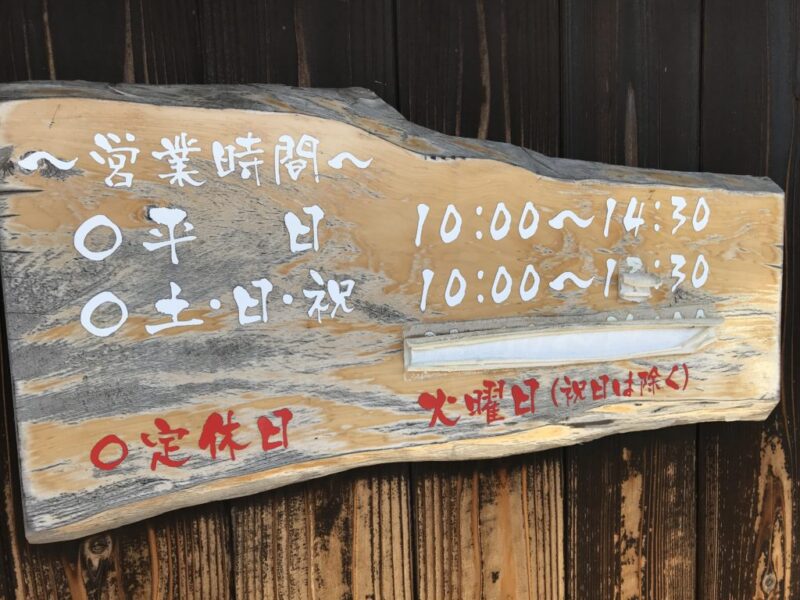 ～営業時間～
○平　　日　10:00～14:30
○土・日・祝　10:00～
○定休日　火曜日(祝日は除く)